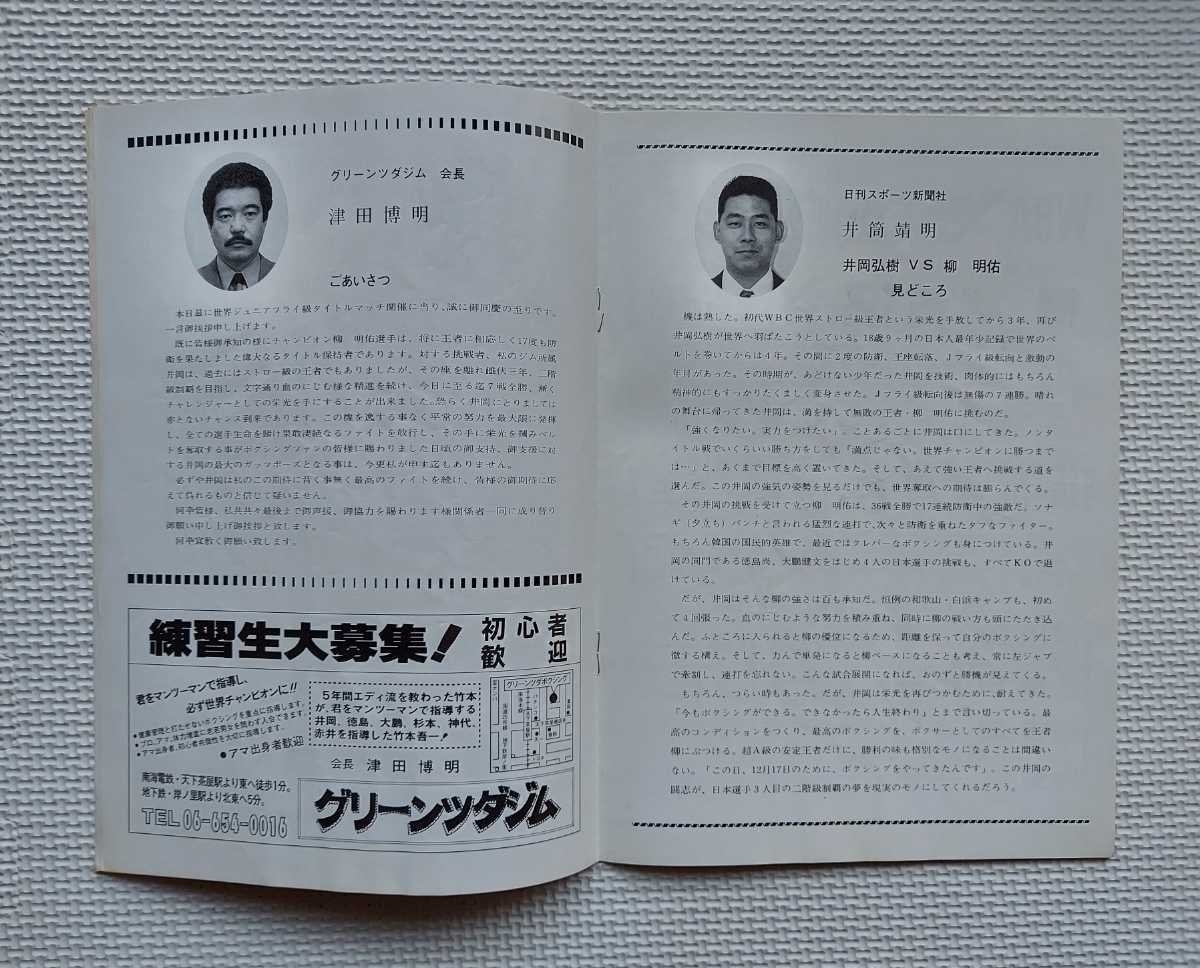 グリーンツダジム　会長
津田博明
ごあいさつ
本日茲に世界ジュニアフライ級タイトルマッチ開催に当り、誠に御同慶の至りです。
一言御挨拶申し上げます。
既に皆様御承知の様にチャンピオン柳　明佑選手は、将に王者に相応しく17度も防
衛を果たしました偉大なるタイトル保持者であります。対する挑戦者、私のジム所属
井岡は、過去にはストロー級の王者でもありましたが、その座を離れ雌伏三年、二階
級制覇を目指し、文字通り血のにじむ様な精進を続け、今日に至る迄7戦全勝、漸く
チャレンジャーとしての栄光を手にすることが出来ました。恐らく井岡にとりましては
亦とないチャンス到来であります。この機を逸する事なく平常の努力を最大限に発揮
し、全ての選手生命を賭け果敢凄絶なるファイトを敢行し、その手に栄光を掴みベル
トを奪取する事がボクシングファンの皆様に賜わりました日頃の御支持、御支援に対
する井岡の最大のガッツポーズとなる事は、今更私が申す迄もありません。
必ずや井岡は私のこの期待に背く事無く最高のファイトを続け、皆様の御期待に応
えて呉れるものと信じて疑いません。
何卒皆様、私共共々最後まで御声援、御協力を賜わります様関係者一同に成り替り
御願い申し上げ御挨拶と致します。
何卒宜敷く御願い致します。
練習生大募集!
初心者
歓迎
君をマンツーマンで指導し、
必ず世界チャンピオンに!!
●健康管理と打たせないボクシングを重点に指導します。
●アマ出身者、初心者共個性を大切に指導します。
●アマ出身者歓迎
5年間エディ流を教わった竹本
が、君をマンツーマンで指導する
井岡、徳島、大鵬、杉本、神代、
赤井を指導した竹本吾一!
会長　津田博明
グリーンツダボクシング
南海電鉄・天下茶屋駅より東へ徒歩1分。
地下鉄・岸ノ里駅より北東へ5分。
TEL 06-654-0016
グリーンツダジム
日刊スポーツ新聞社
井筒靖明
井岡弘樹 VS 柳　明佑
見どころ
機は熟した。初代WBC世界ストロー級王者という栄光を手放してから3年、再び
井岡弘樹が世界へ羽ばたこうとしている。18歳9ヶ月の日本人最年少記録で世界のベ
ルトを巻いてからは4年。その間に2度の防衛、王座転落、Jフライ級転向と激動の
年月があった。その時期が、あどけない少年だった井岡を技術、肉体的にはもちろん
精神的にもすっかりたくましく変身させた。Jフライ級転向後は無傷の7連勝。晴れ
の舞台に帰ってきた井岡は、満を持して無敗の王者・柳　明佑に挑むのだ。
「強くなりたい。実力をつけたい」。ことあるごとに井岡は口にしてきた。ノンタ
イトル戦でいくらいい勝ち方をしても「満点じゃない。世界チャンピオンに勝つまで
は…」と、あくまで目標を高く置いてきた。そして、あえて強い王者へ挑戦する道を
選んだ。この井岡の強気の姿勢を見るだけでも、世界奪取への期待は膨らんでくる。
その井岡の挑戦を受けて立つ柳　明佑は、36戦全勝で17連続防衛中の強敵だ。ソナ
ギ（夕立ち）パンチと言われる猛烈な連打で、次々と防衛を重ねたタフなファイター。
もちろん韓国の国民的英雄で、最近ではクレバーなボクシングも身につけている。井
岡の同門である徳島尚、大鵬健文をはじめ4人の日本選手の挑戦も、すべてKOで退
けている。
だが、井岡はそんな柳の強さは百も承知だ。恒例の和歌山・白浜キャンプも、初め
て4回張った。血のにじむような努力を積み重ね、同時に柳の戦い方も頭にたたき込
んだ。ふところに入られると柳の優位になるため、距離を保って自分のボクシングに
徹する構え。そして、力んで単発になると柳ペースになることも考え、常に左ジャブ
で牽制し、連打を忘れない。こんな試合展開になれば、おのずと勝機が見えてくる。
もちろん、つらい時もあった。だが、井岡は栄光を再びつかむために、耐えてきた。
「今もボクシングができる。できなかったら人生終わり」とまで言い切っている。最
高のコンディションをつくり、最高のボクシングを、ボクサーとしてのすべてを王者
柳にぶつける。超A級の安定王者だけに、勝利の味も格別なモノになることは間違い
ない。「この日、12月17日のために、ボクシングをやってきたんです」。この井岡の
闘志が、日本選手3人目の二階級制覇の夢を現実のモノにしてくれるだろう。